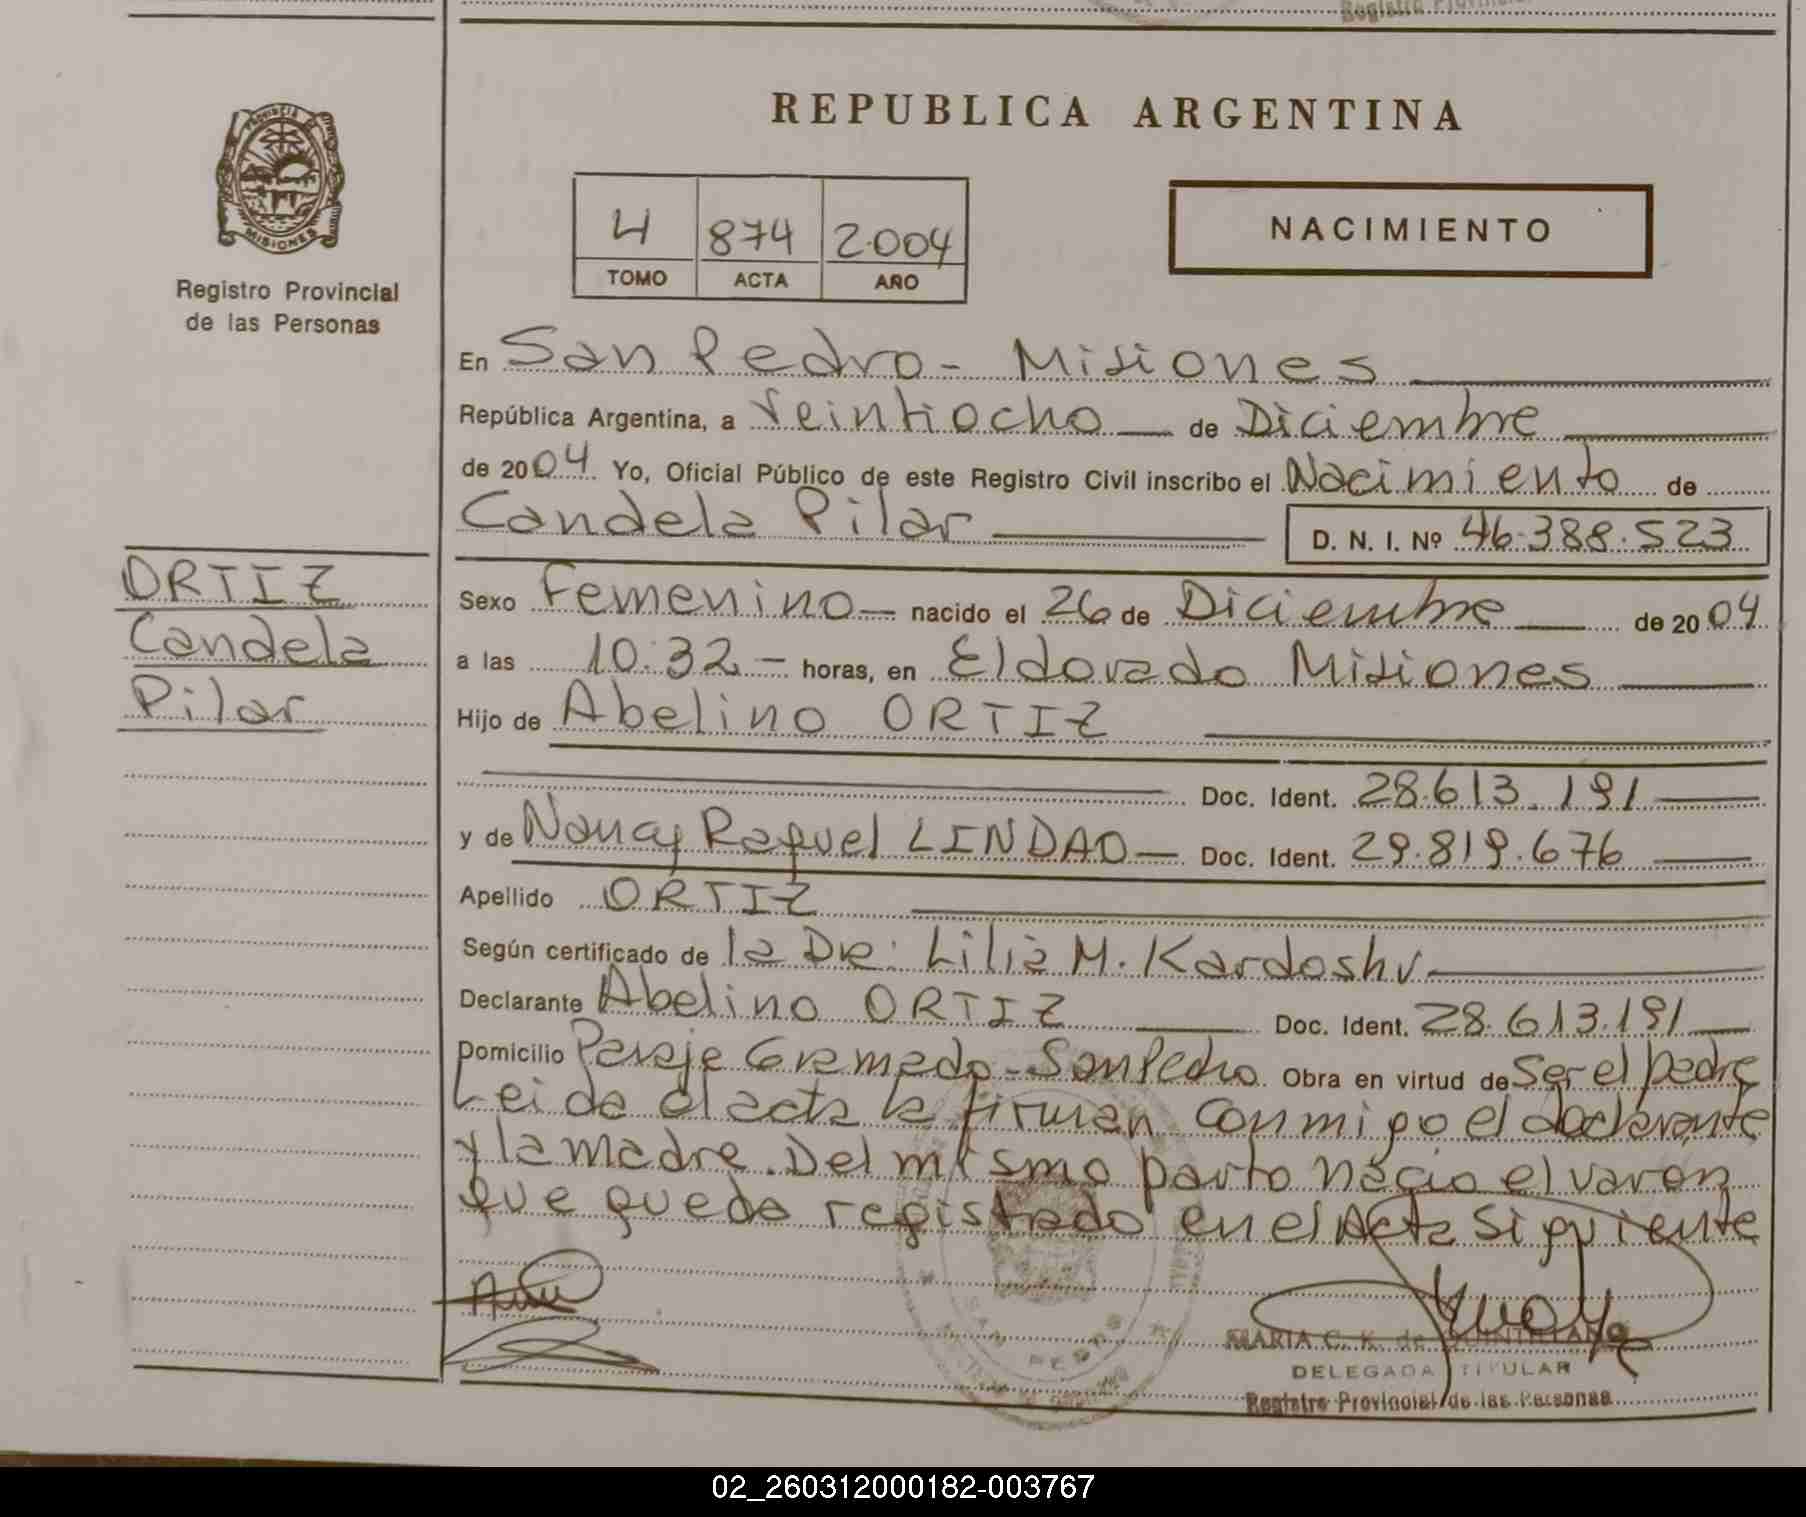 Registro Provincial
PROVINCIA DE
MISIONES
Registro Provincial
de las Personas
ORTIZ
Candela
Pilar
REPUBLICA ARGENTINA
4 874 2.004
TOMO ACTA AÑO
NACIMIENTO
En San Pedro - Misiones
República Argentina, a Veintiocho de Diciembre
de 2004 Yo, Oficial Público de este Registro Civil inscribo el Nacimiento de
Candela Pilar D. N. I. Nº 46.388.523
Sexo Femenino nacido el 26 de Diciembre de 2004
a las 10:32 - horas, en Eldorado Misiones
Hijo de Abelino ORTIZ
Doc. Ident. 28.613.191
y de Nancy Raquel LINDAO Doc. Ident. 29.819.676
Apellido ORTIZ
Según certificado de la Dra: Lilia M. Kardoshv
Declarante Abelino ORTIZ Doc. Ident. 28.613.191
Domicilio Paraje Gramado - San Pedro Obra en virtud de Ser el padre
Leida el acta la firman conmigo el declarante
y la madre. Del mismo parto nacio el varon
que queda registrado en el Acta Siguiente
SAN PEDRO
MARIA C. K. de QUINTILLANO
DELEGADA TITULAR
Registro Provincial de las Personas
02_260312000182-003767